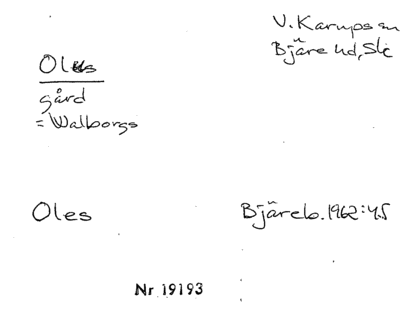 V. Karups sn
Bjäre hd, Sk
Oles
gård
= Walborgs
Oles
Bjäreb. 1962:45
Nr 19193